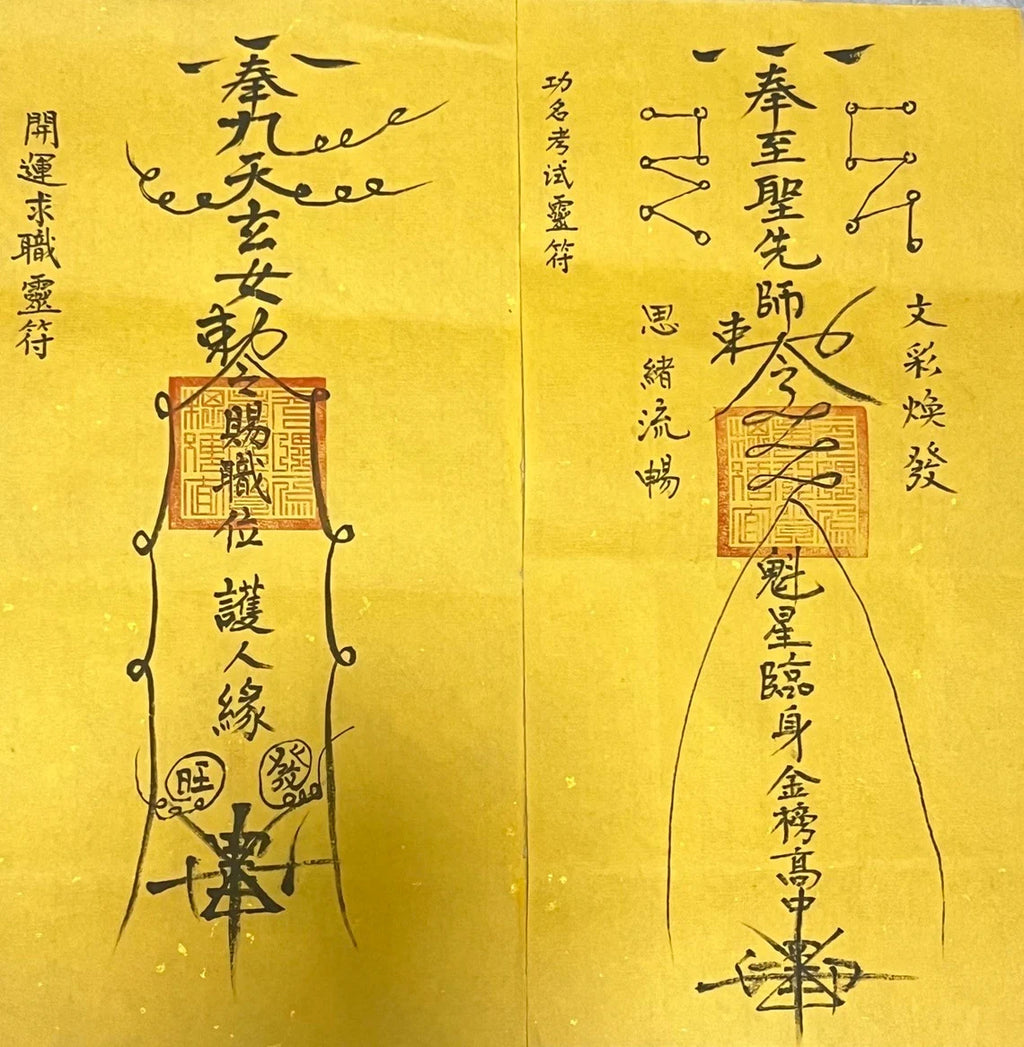 開運求職靈符
奉九天玄女
勅令
賜職位
護人緣
旺
發
功名考试靈符
奉至聖先師
勅令
思緒流暢
文彩煥發
魁星臨身金榜高中